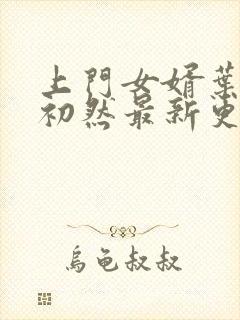 上門女婿葉
初然最新更
烏龜叔叔